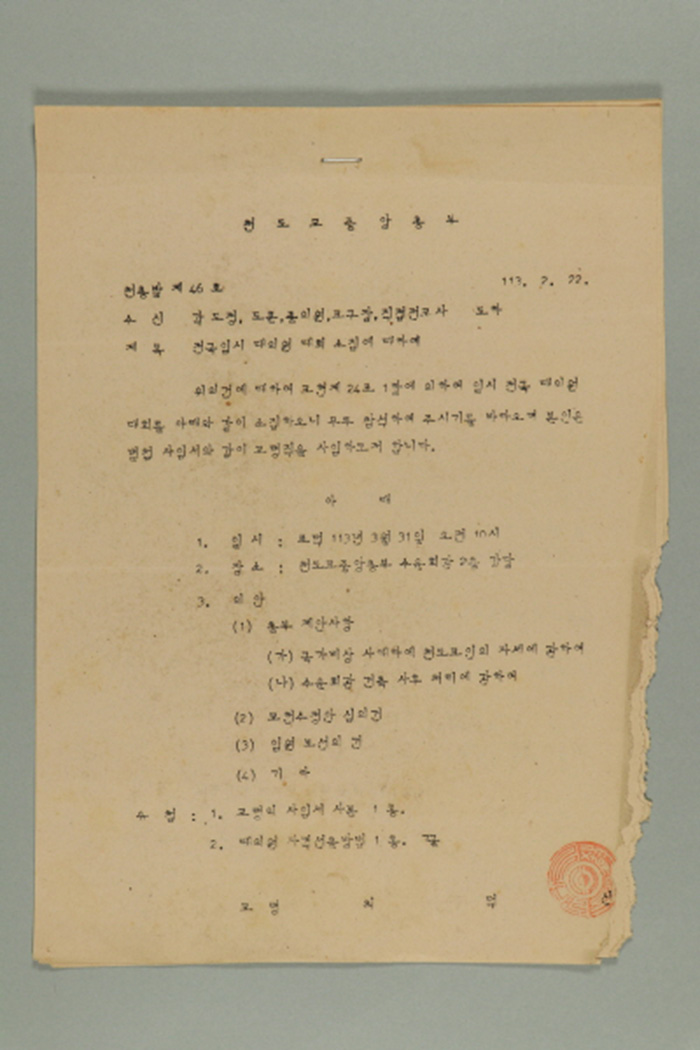 천 도 교 중 앙 총 부
천총발 제 46 호 113. 2. 22.
수 신 각 도정, 도훈, 종의원, 교구장, 직접전교사 도하
제 목 전국임시 대의원 대회 소집에 대하여
위의건에 대하여 교헌제 24조 1항에 의하여 임시 전국 대의원
대회를 아래와 같이 소집하오니 무루 참석하여 주시기를 바라오며 본인은
별첨 사임서와 같이 교령직을 사임하고저 합니다.
아 래
1. 일 시 : 포덕 113년 3월 31일 오전 10시
2. 장 소 : 천도교중앙총부 수운회관 2층 강당
3. 의 안
(1) 총부 제안사항
(가) 국가비상 사태하에 천도교인의 자세에 관하여
(나) 수운회관 건축 사후 처리에 관하여
(2) 교헌수정안 심의건
(3) 임원 보선의 건
(4) 기 타
첨 : 1. 교령의 사임서 사본 1 통.
2. 대의원 자격선출방법 1 통. 끝
교 령 최 덕 신